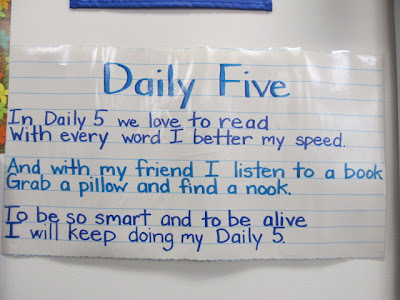 Daily Five
In Daily 5 we love to read
With every word I better my speed.
And with my friend I listen to a book
Grab a pillow and find a nook.
To be so smart and to be alive
I will keep doing my Daily 5.